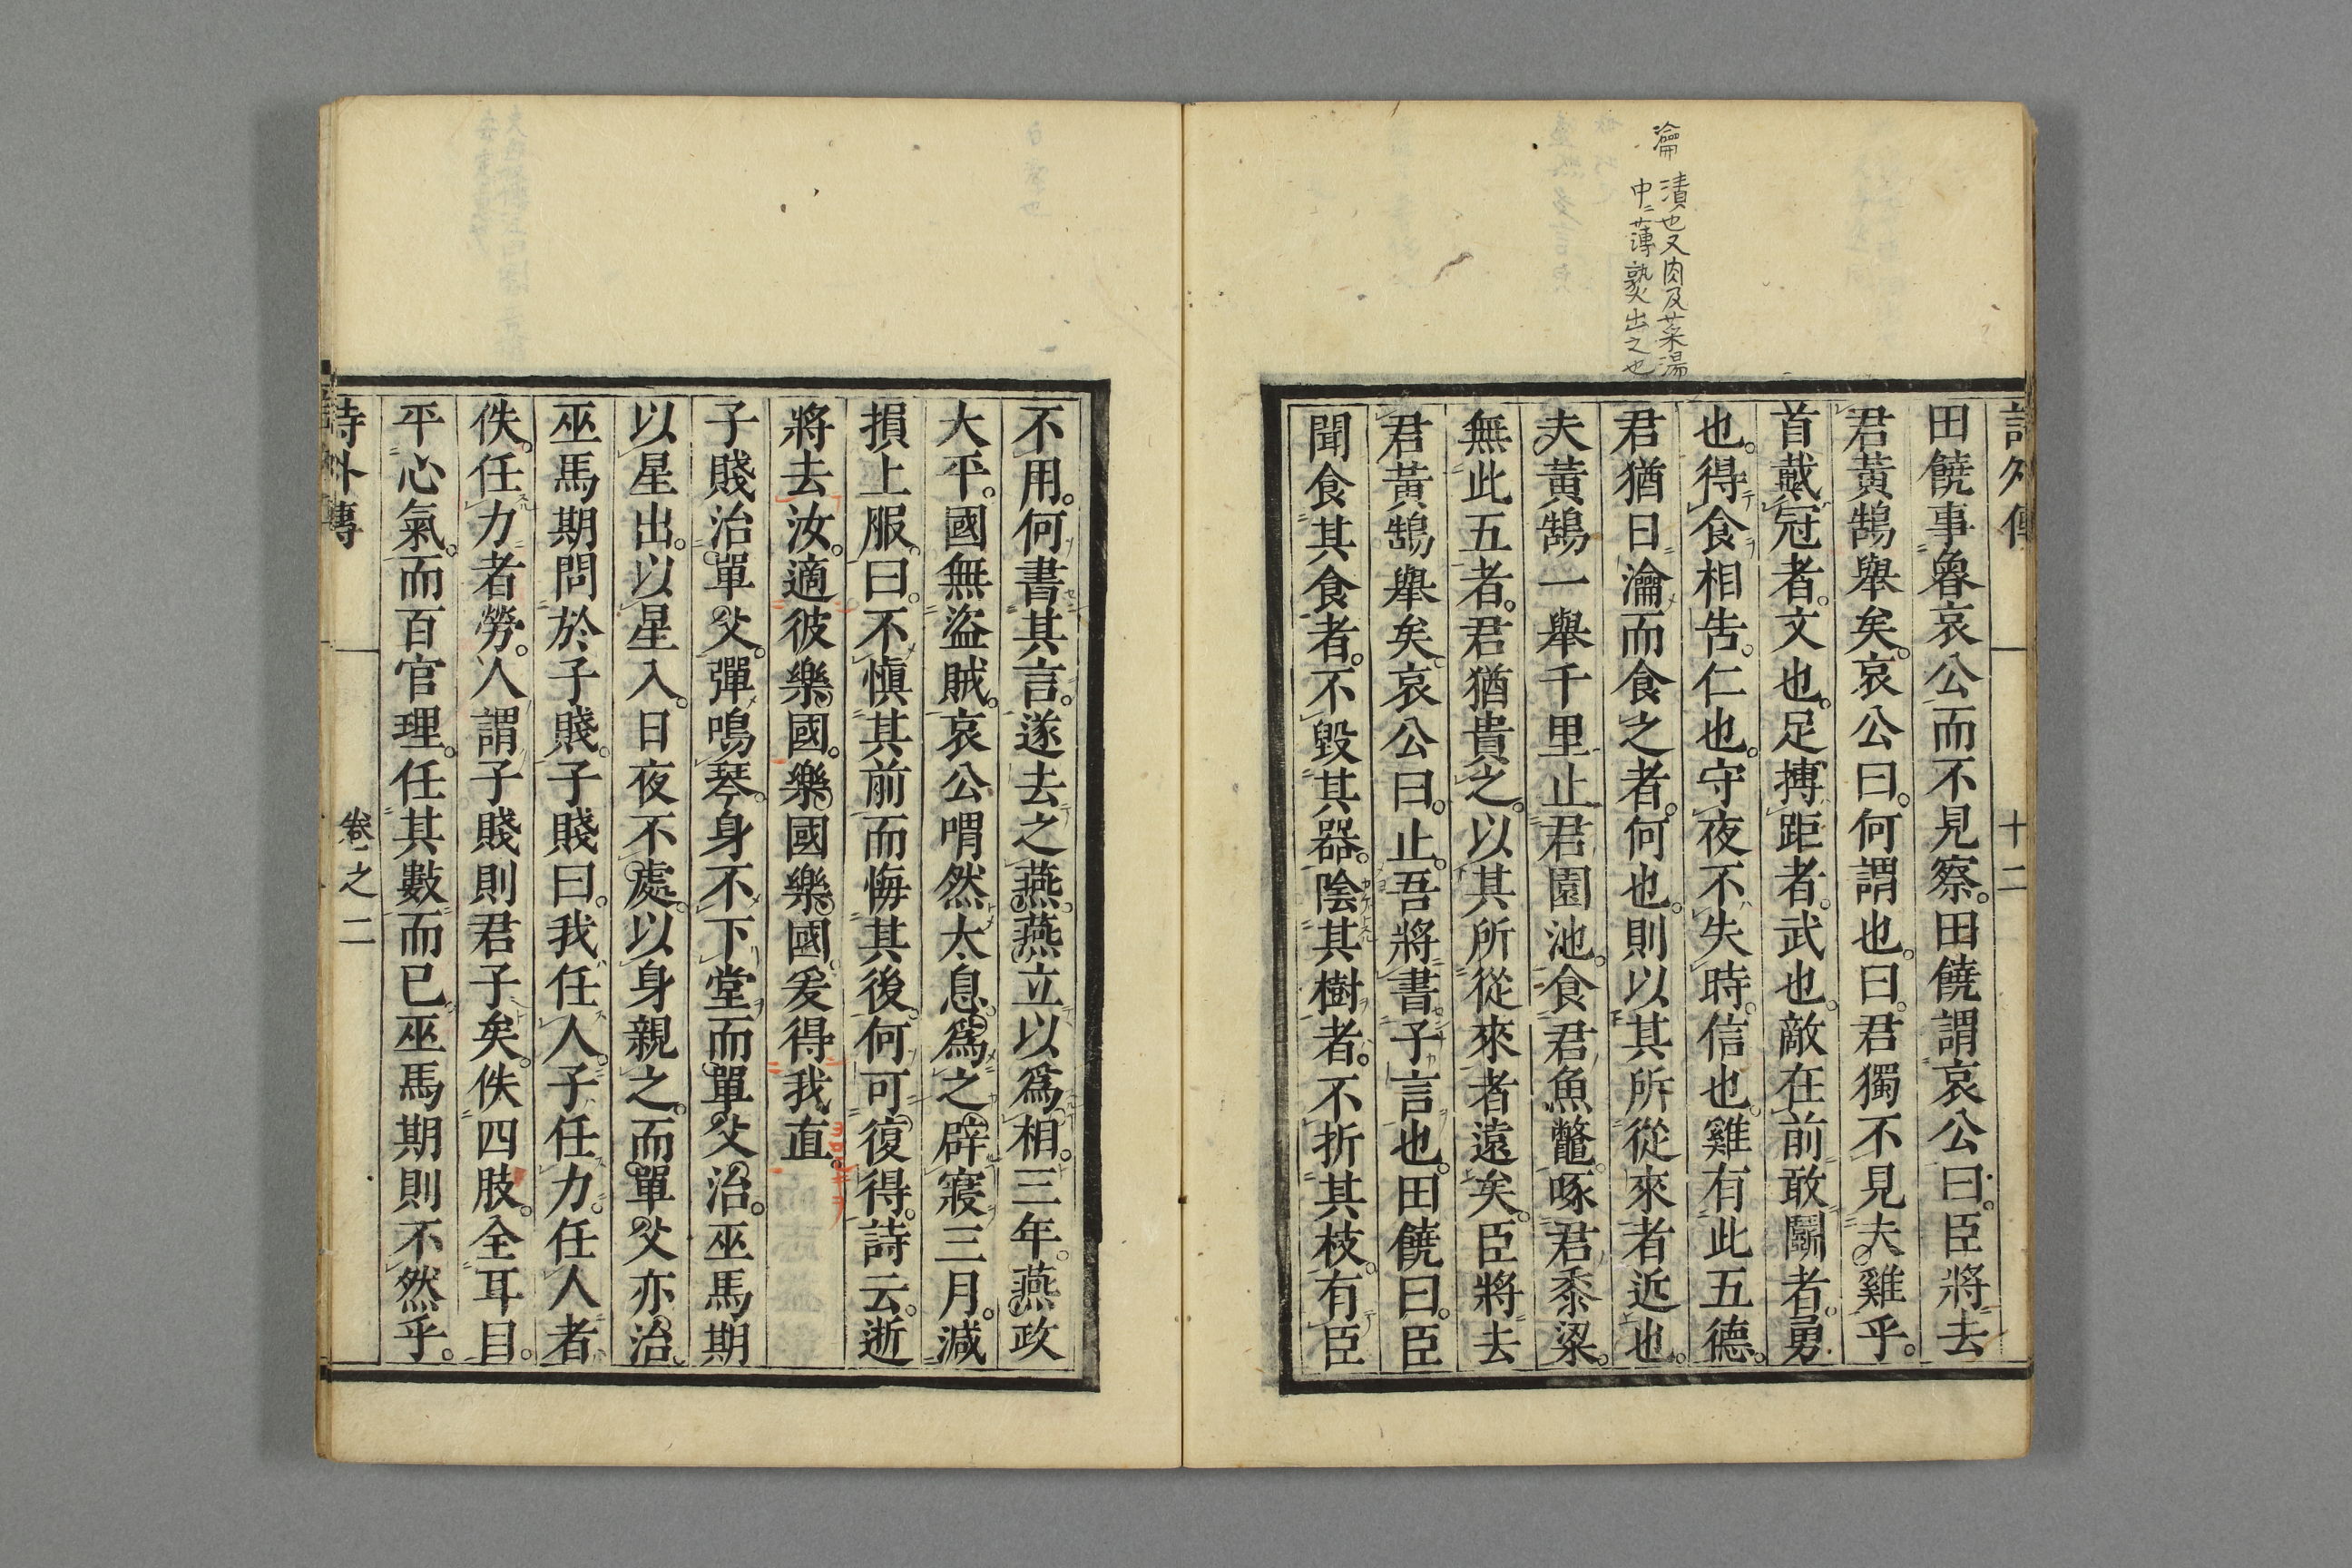 瀹 漬也又肉及菜湯
中ニ薄熟出之也
十二
田饒事魯哀公而不見察。田饒謂哀公曰。臣將去
君黃鵠舉矣。哀公曰。何謂也。曰。君獨不見夫雞乎。
首戴冠者。文也。足搏距者。武也。敵在前敢鬭者。勇
也。得食相告。仁也。守夜不失時。信也。雞有此五德。
君猶日瀹而食之者。何也。則以其所從來者近也。
夫黃鵠一舉千里。止君園池。食君魚鼈。啄君黍粱。
無此五者。君猶貴之。以其所從來者遠矣。臣將去
君黃鵠舉矣。哀公曰。止。吾將書子言也。田饒曰。臣
聞食其食者。不毀其器。陰其樹者。不折其枝。有臣
不用。何書其言。遂去之燕。燕立以爲相。三年。燕政
大平。國無盜賊。哀公喟然太息。爲之辟寢三月。減
損上服。曰。不愼其前而悔其後。何可復得。詩云。逝
將去汝。適彼樂國。樂國樂國。爰得我直。
子賤治單父。彈鳴琴。身不下堂而單父治。巫馬期
以星出。以星入。日夜不處。以身親之。而單父亦治。
巫馬期問於子賤。子賤曰。我任人。子任力。任人者
佚。任力者勞。人謂子賤則君子矣。佚四肢。全耳目。
平心氣。而百官理。任其數而已巫馬期則不然乎。
詩外傳
卷之二